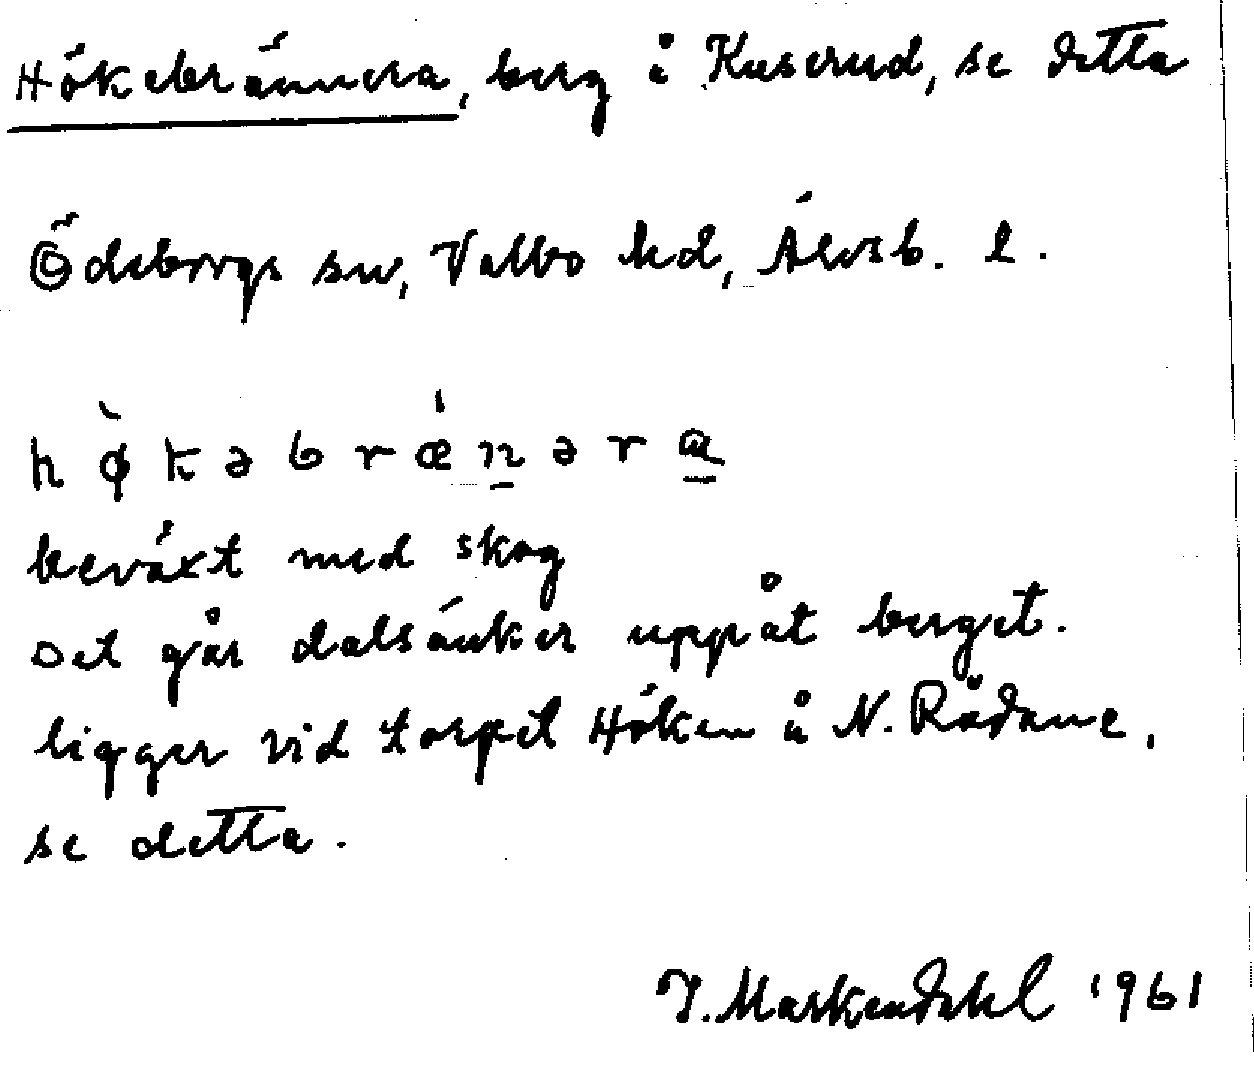 Hökebrännera, berg i Kuserud, se detta
Ödeborgs sn, Valbo hd, Älvsb. l.
hø̀kəbrǽn̲əra̲
beväxt med skog
Det går dalsänker uppåt berget.
ligger vid torpet Höken å N. Rådane,
se detta.
J. Markendahl 1961